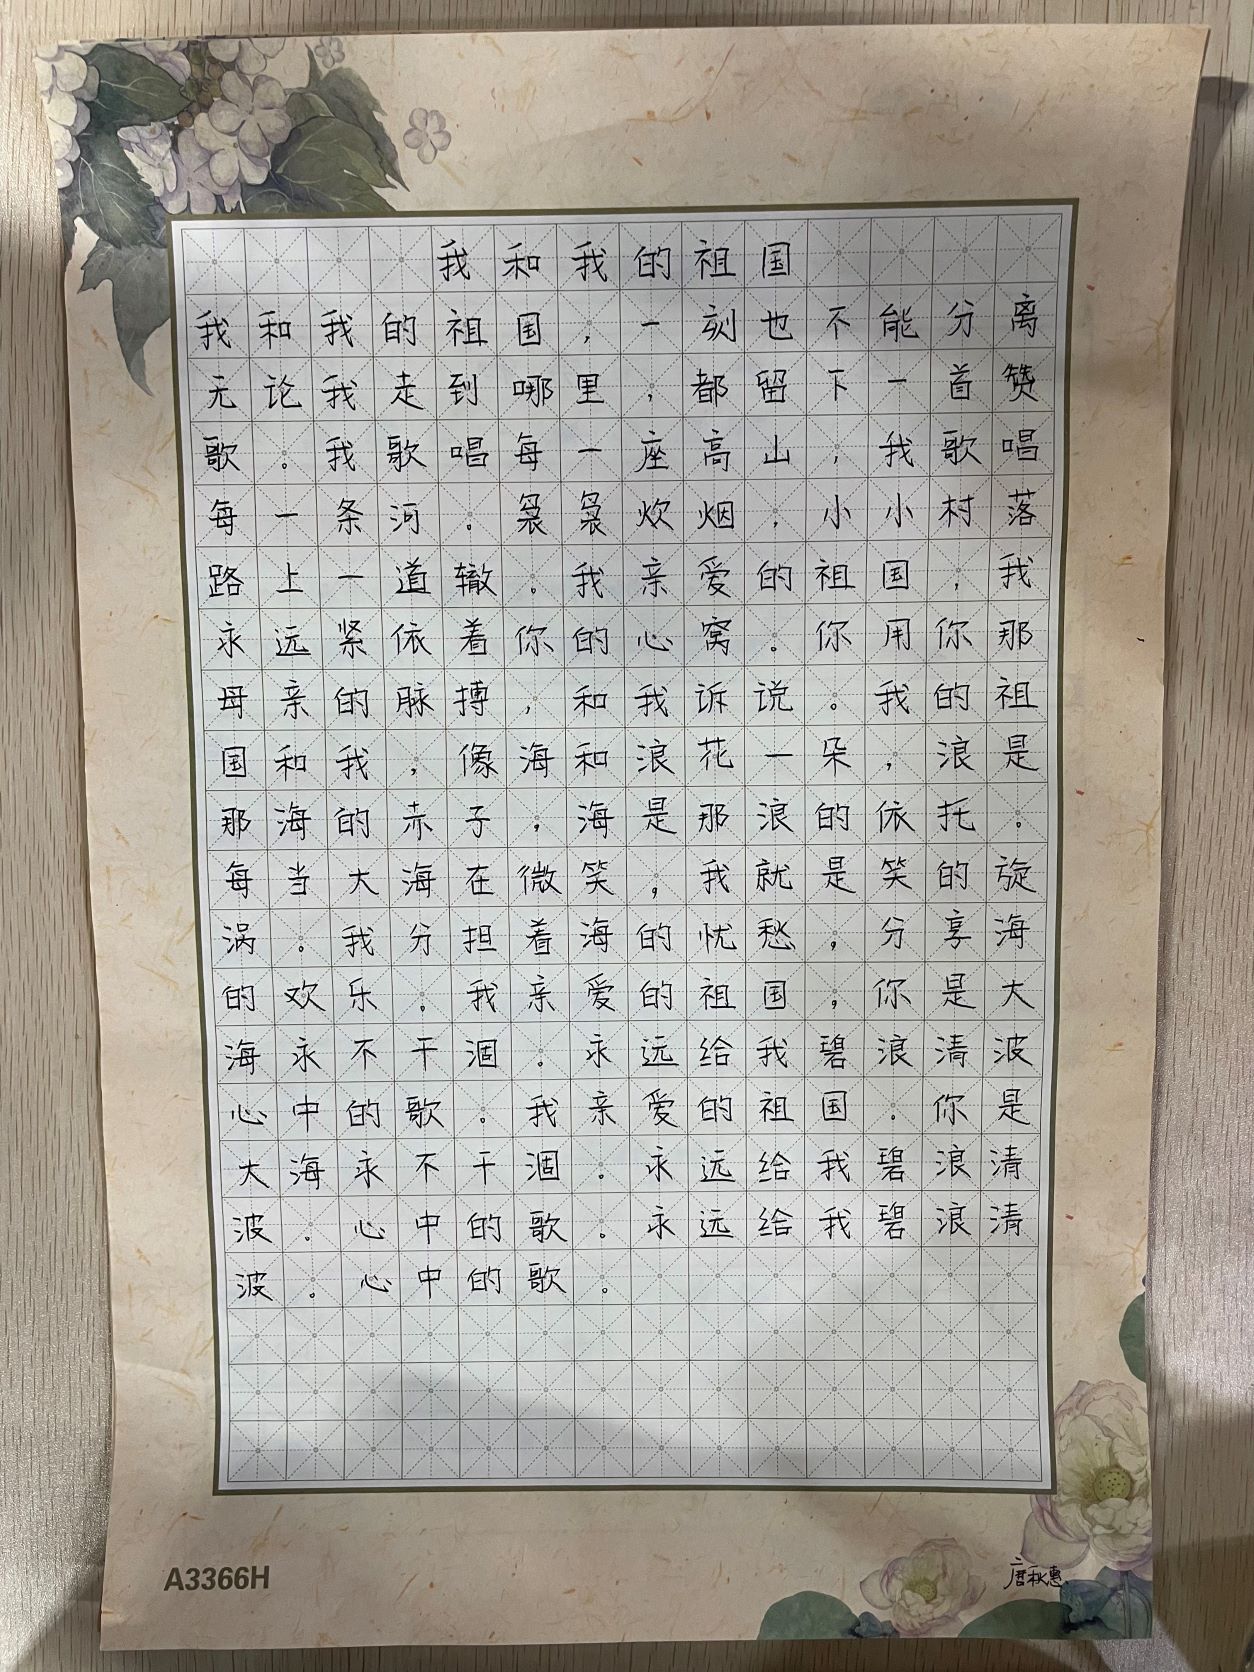 我和我的祖国
我和我的祖国，一刻也不能分离
无论我走到哪里，都留下一首赞
歌。我歌唱每一座高山，我歌唱
每一条河。袅袅炊烟，小小村落
路上一道辙。我亲爱的祖国，我
永远紧依着你的心窝。你用你那
母亲的脉搏，和我诉说。我的祖
国和我，像海和浪花一朵，浪是
那海的赤子，海是那浪的依托。
每当大海在微笑，我就是笑的旋
涡。我分担着海的忧愁，分享海
的欢乐。我亲爱的祖国，你是大
海永不干涸。永远给我碧浪清波
心中的歌。我亲爱的祖国。你是
大海永不干涸。永远给我碧浪清
波。心中的歌。永远给我碧浪清
波。心中的歌。
A3366H
唐秋惠